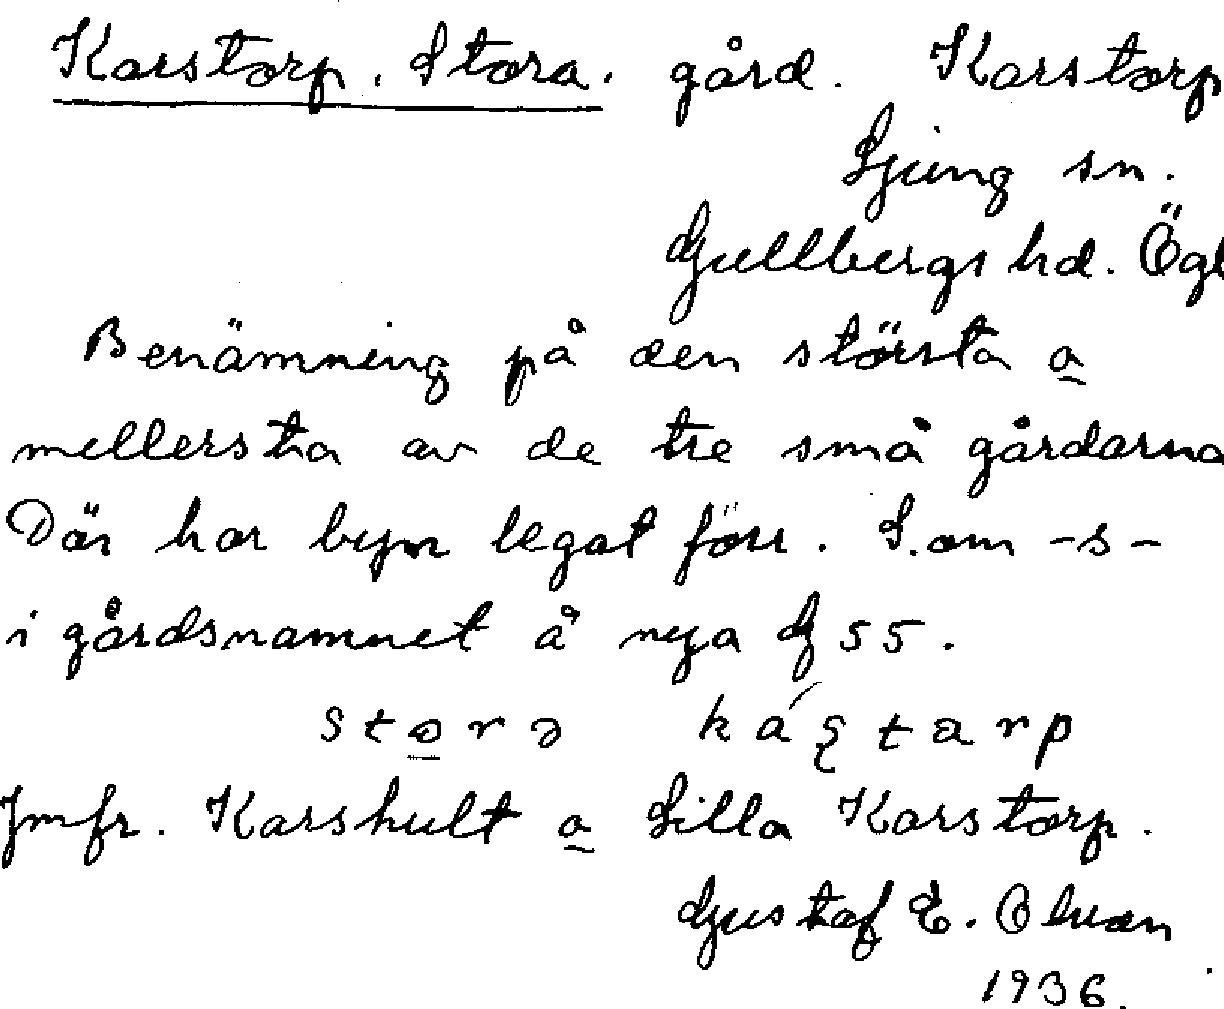 Karstorp. Stora. gård. Karstorp
Ljung sn.
Gullbergs hd. Ögl
Benämning på den största a
mellersta av de tre små gårdarna
Där har byn legat förr. S. om -s-
i gårdsnamnet å nya G 55.
Jmfr. Karshult a Lilla Karstorp.
Gustaf E.
1936.